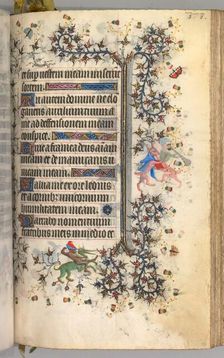 et sup vestem meam miserūt
sortem.
Tu autem domine ne elō
gaueris auxilium tuum a me
ad defensionem meam con
spice.
Erue a framea deus aīam
meam et de manu canis uni
cam meam.
Salua me ex ore leonis
et a cornibus unicornium
humilitatem meam.
Narrabo nomen tuum
fratribus meis in medio ec